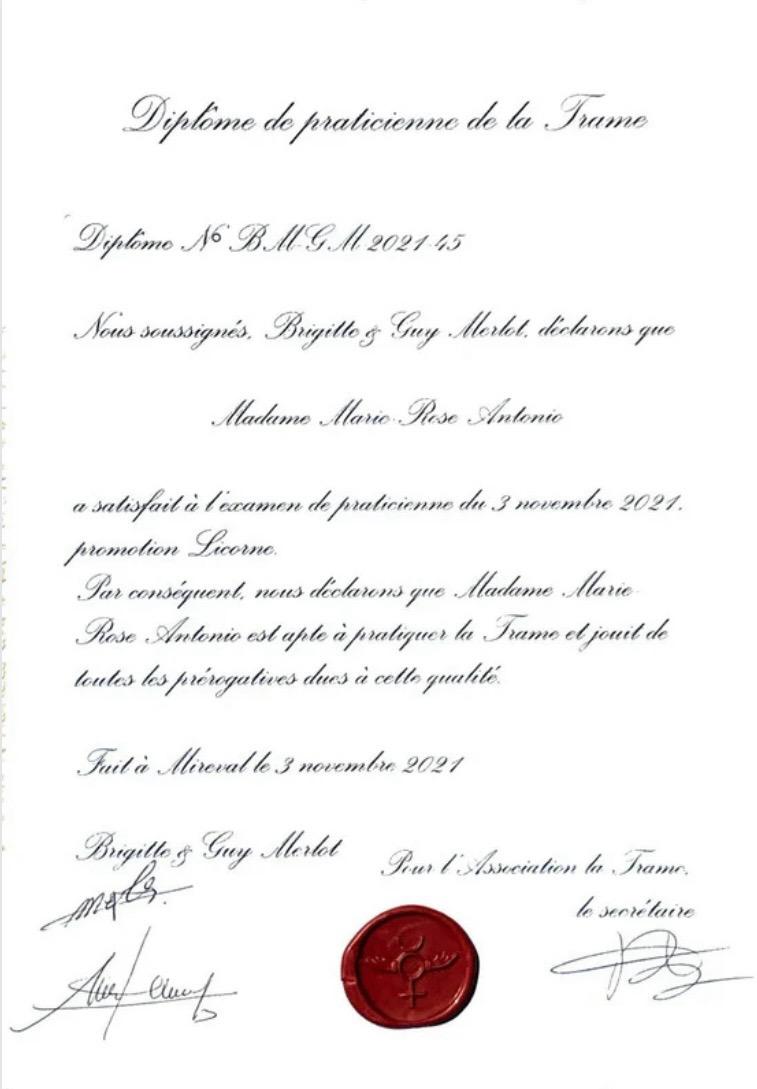 Diplôme de praticienne de la Trame
Diplôme N° B.M-G.M-2021-45
Nous soussignés, Brigitte & Guy Merlot, déclarons que
Madame Marie-Rose Antonio
a satisfait à l'examen de praticienne du 3 novembre 2021,
promotion Licorne.
Par conséquent, nous déclarons que Madame Marie-
Rose Antonio est apte à pratiquer la Trame et jouit de
toutes les prérogatives dues à cette qualité.
Fait à Mireval le 3 novembre 2021
Brigitte & Guy Merlot
Pour l'Association la Trame,
le secrétaire